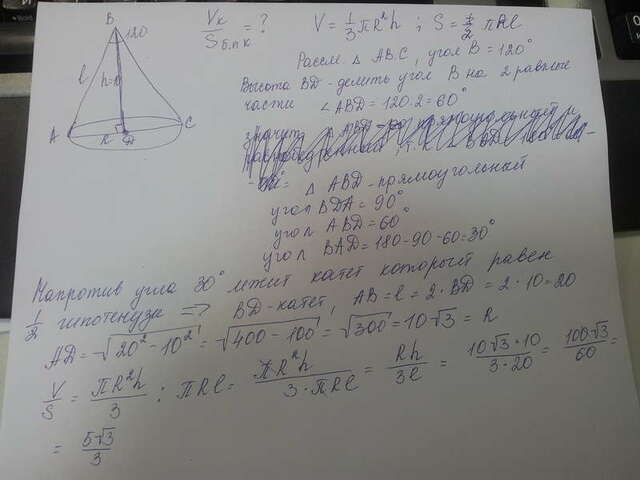 B
120
l
h=10
A
C
R
D
Vк / Sб.п.к = ?   V = 1/3 πR²h ; S = πRl
Рассм. △ ABC, угол B = 120°
Высота BD - делить угол B на 2 равные
части ∠ABD = 120:2 = 60°
△ ABD - прямоугольный
угол BDA = 90°
угол ABD = 60°
угол BAD = 180-90-60 = 30°
Напротив угла 30° лежит катет который равен
1/2 гипотенузе => BD - катет, AB = l = 2·BD = 2·10 = 20
AD = √(20²-10²) = √(400-100) = √300 = 10√3 = R
V/S = πR²h/3 : πRl = πR²h/(3·πRl) = Rh/3l = 10√3·10/(3·20) = 100√3/60 =
= 5√3/3